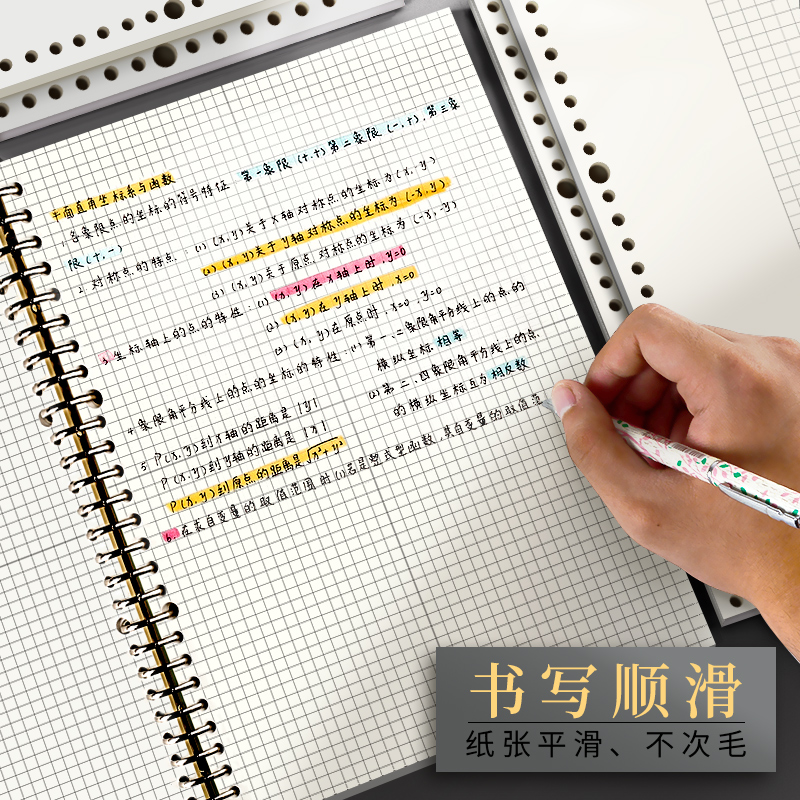 平面直角坐标系与函数
1. 各象限点的坐标的符号特征 第一象限(+,+)第二象限(-,+),第三象
限(+,-)
2. 对称点的特点:(1)(x,y)关于x轴对称点的坐标为(x,-y)
(2)(x,y)关于y轴对称点的坐标为(-x,y)
(3)(x,y)关于原点对称点的坐标为(-x,-y)
3. 坐标轴上的点的特性:(1)(x,y)在x轴上时,y=0
(2)(x,y)在y轴上时,x=0
(3)(x,y)在原点时,x=0,y=0
4. 象限角平分线上的点的坐标的特性:(1)第一、三象限角平分线上的点的
横纵坐标相等
(2)第二、四象限角平分线上的点
的横纵坐标互为相反数
5. P(x,y)到x轴的距离是|y|
P(x,y)到y轴的距离是|x|
P(x,y)到原点的距离是√x²+y²
6. 在求自变量的取值范围时(1)若是整式型函数,其自变量的取值范
书写顺滑
纸张平滑、不次毛